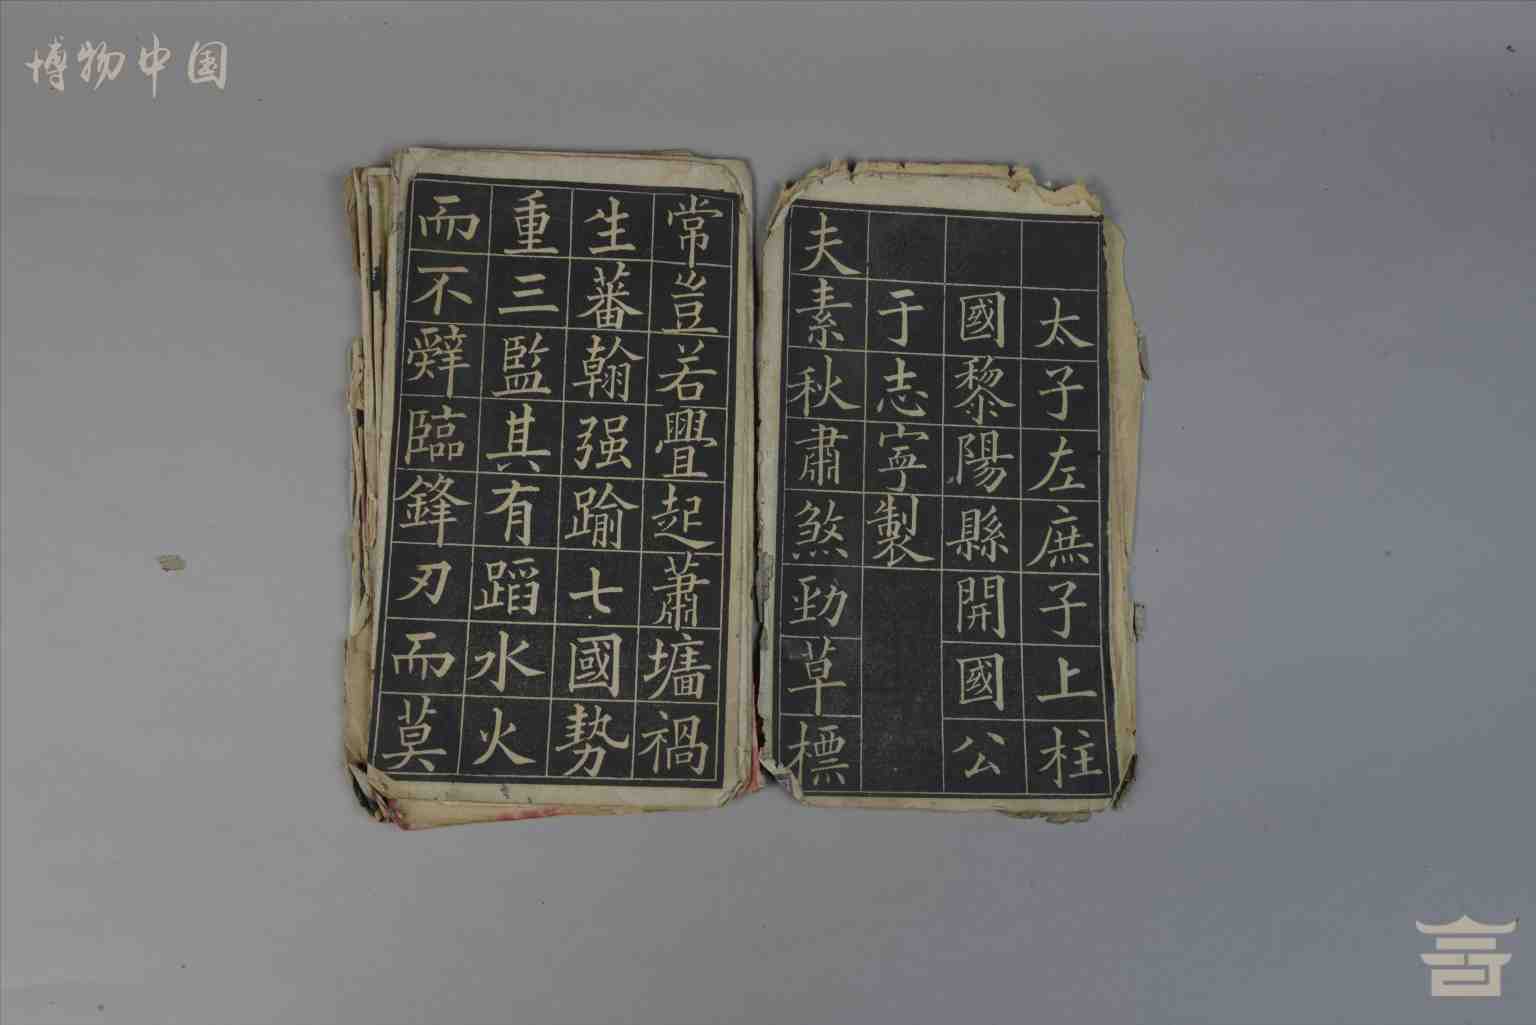 博物中国
太子左庶子上柱
國黎陽縣開國公
于志寧製
夫素秋肅煞勁草標
常豈若疊起蕭墻禍
生蕃翰强踰七國勢
重三監其有蹈水火
而不辭臨鋒刃而莫